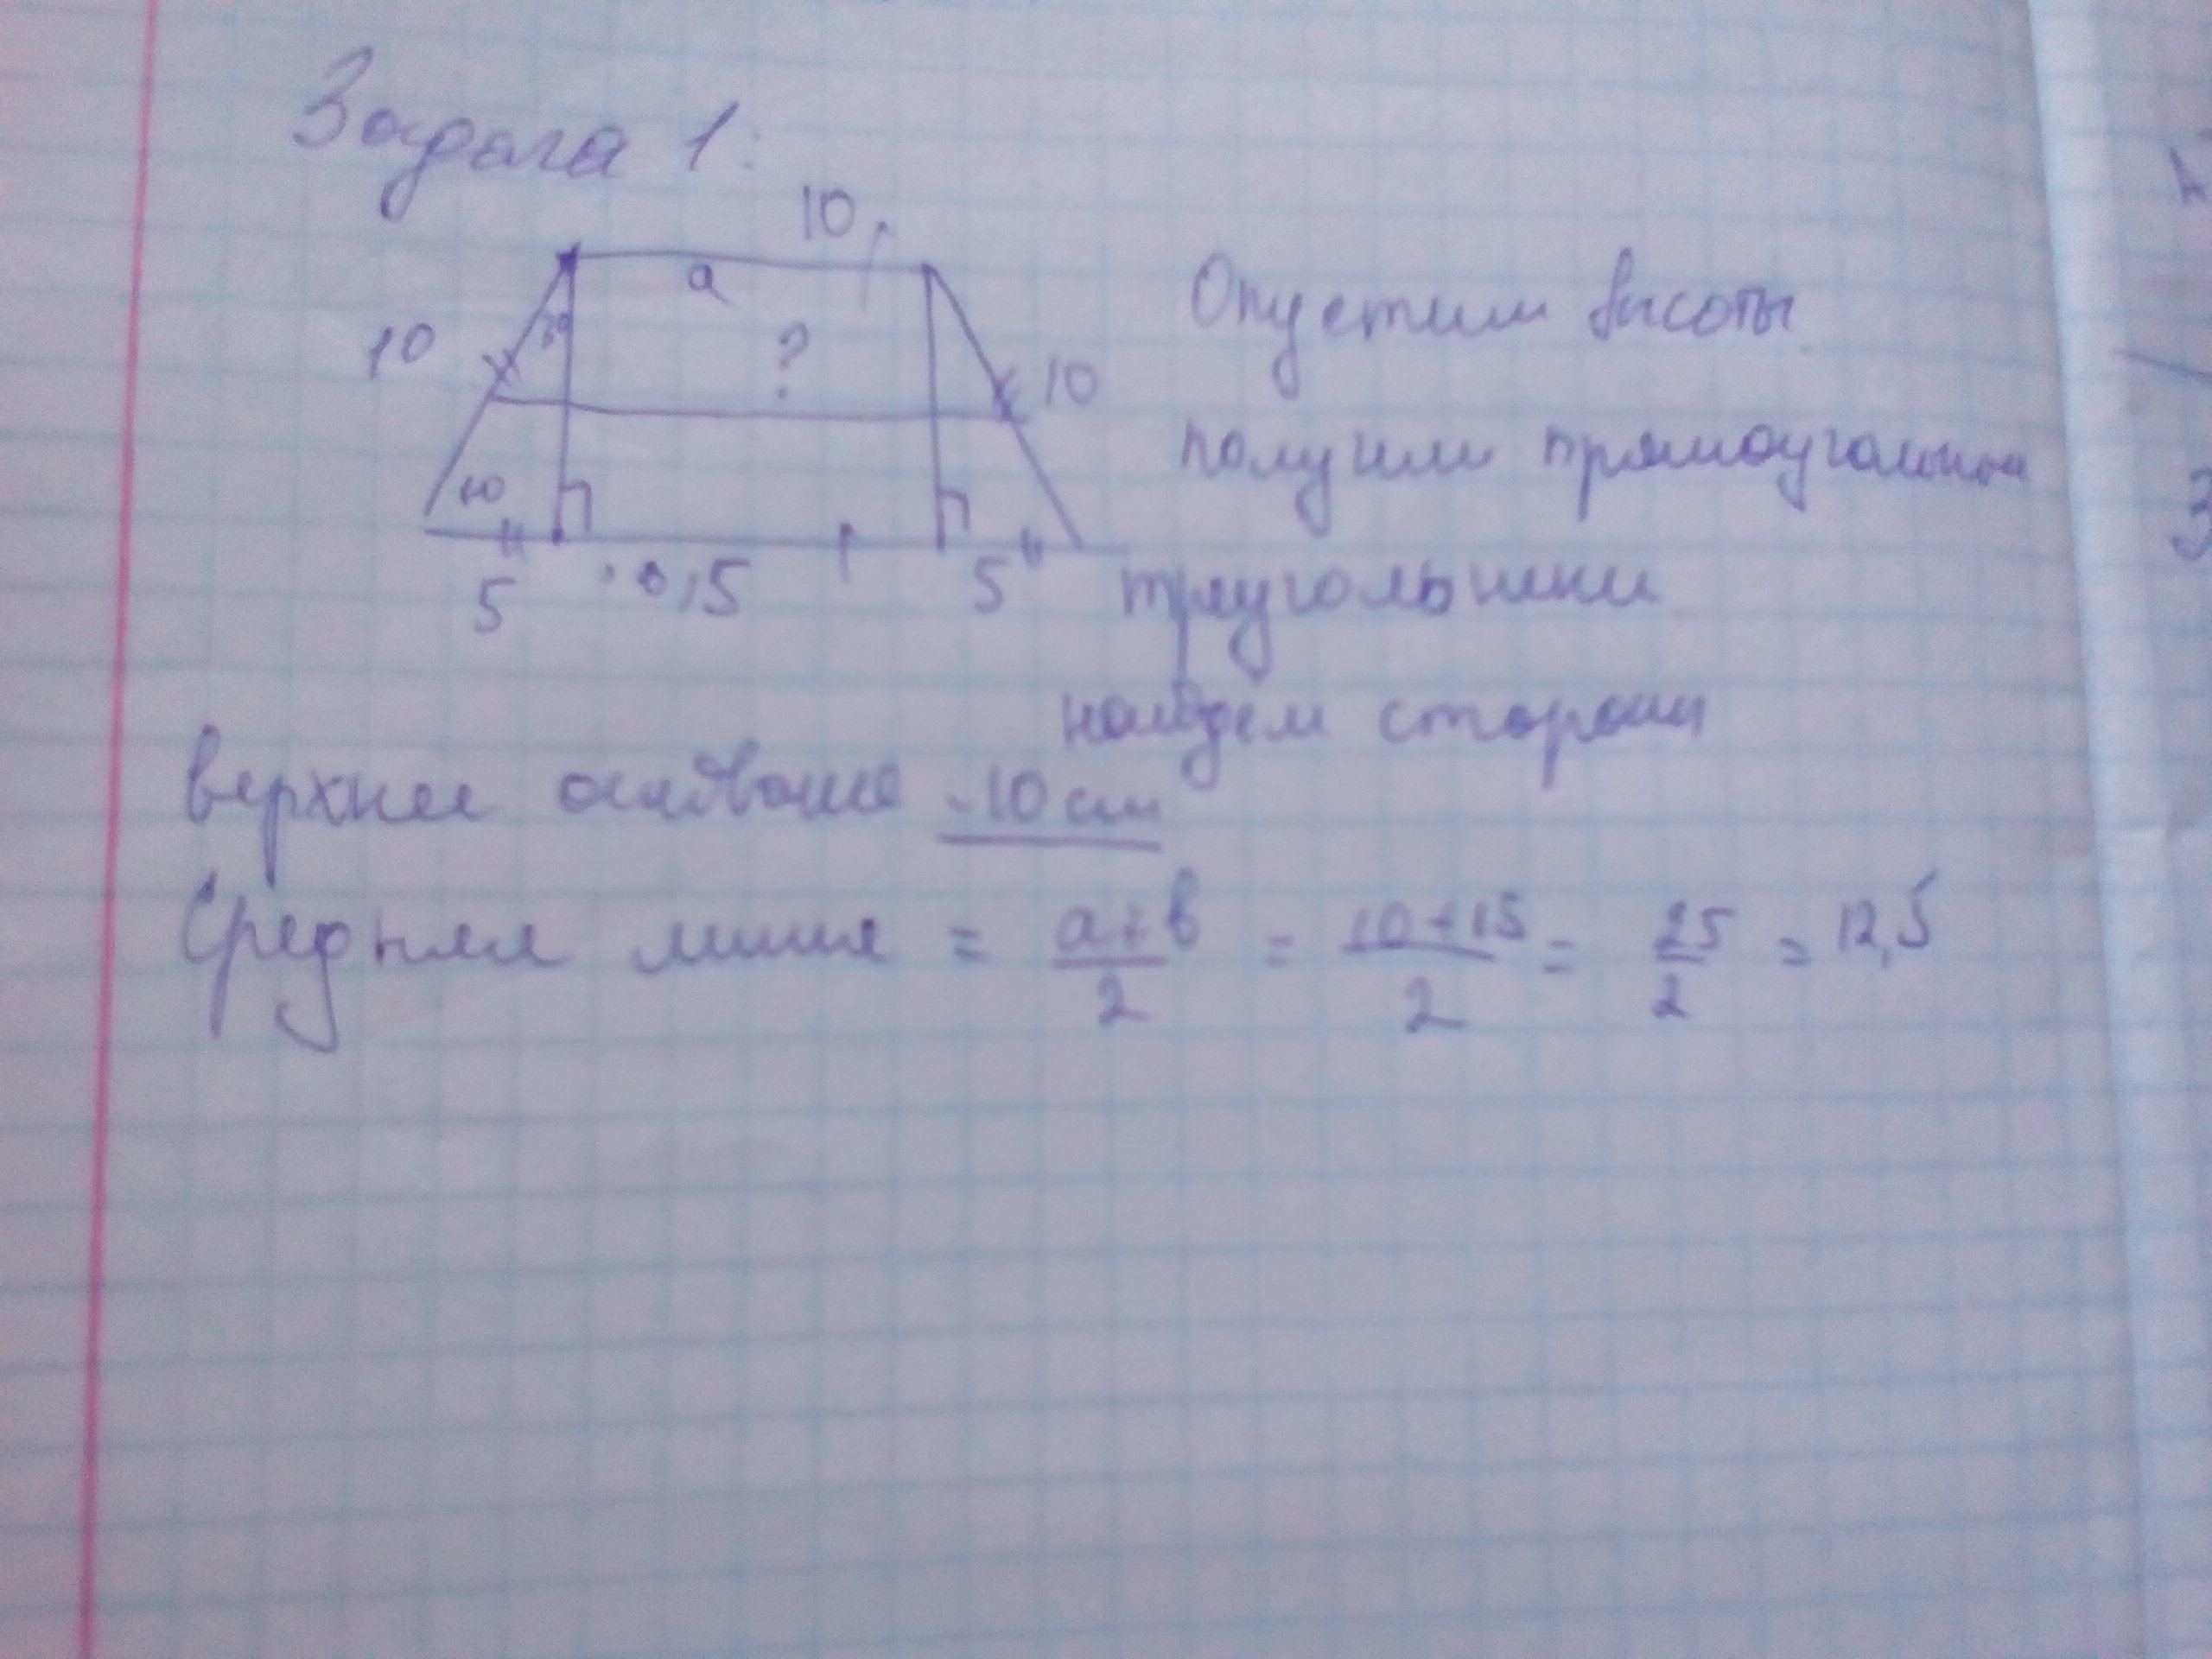 Задача 1:
10
a
30
10
?
10
60
5
15
5
Опустим высоты
получим прямоугольные
треугольники
найдём стороны
верхнее основание - 10 см
Средняя линия = a+b/2 = 10+15/2 = 25/2 = 12,5